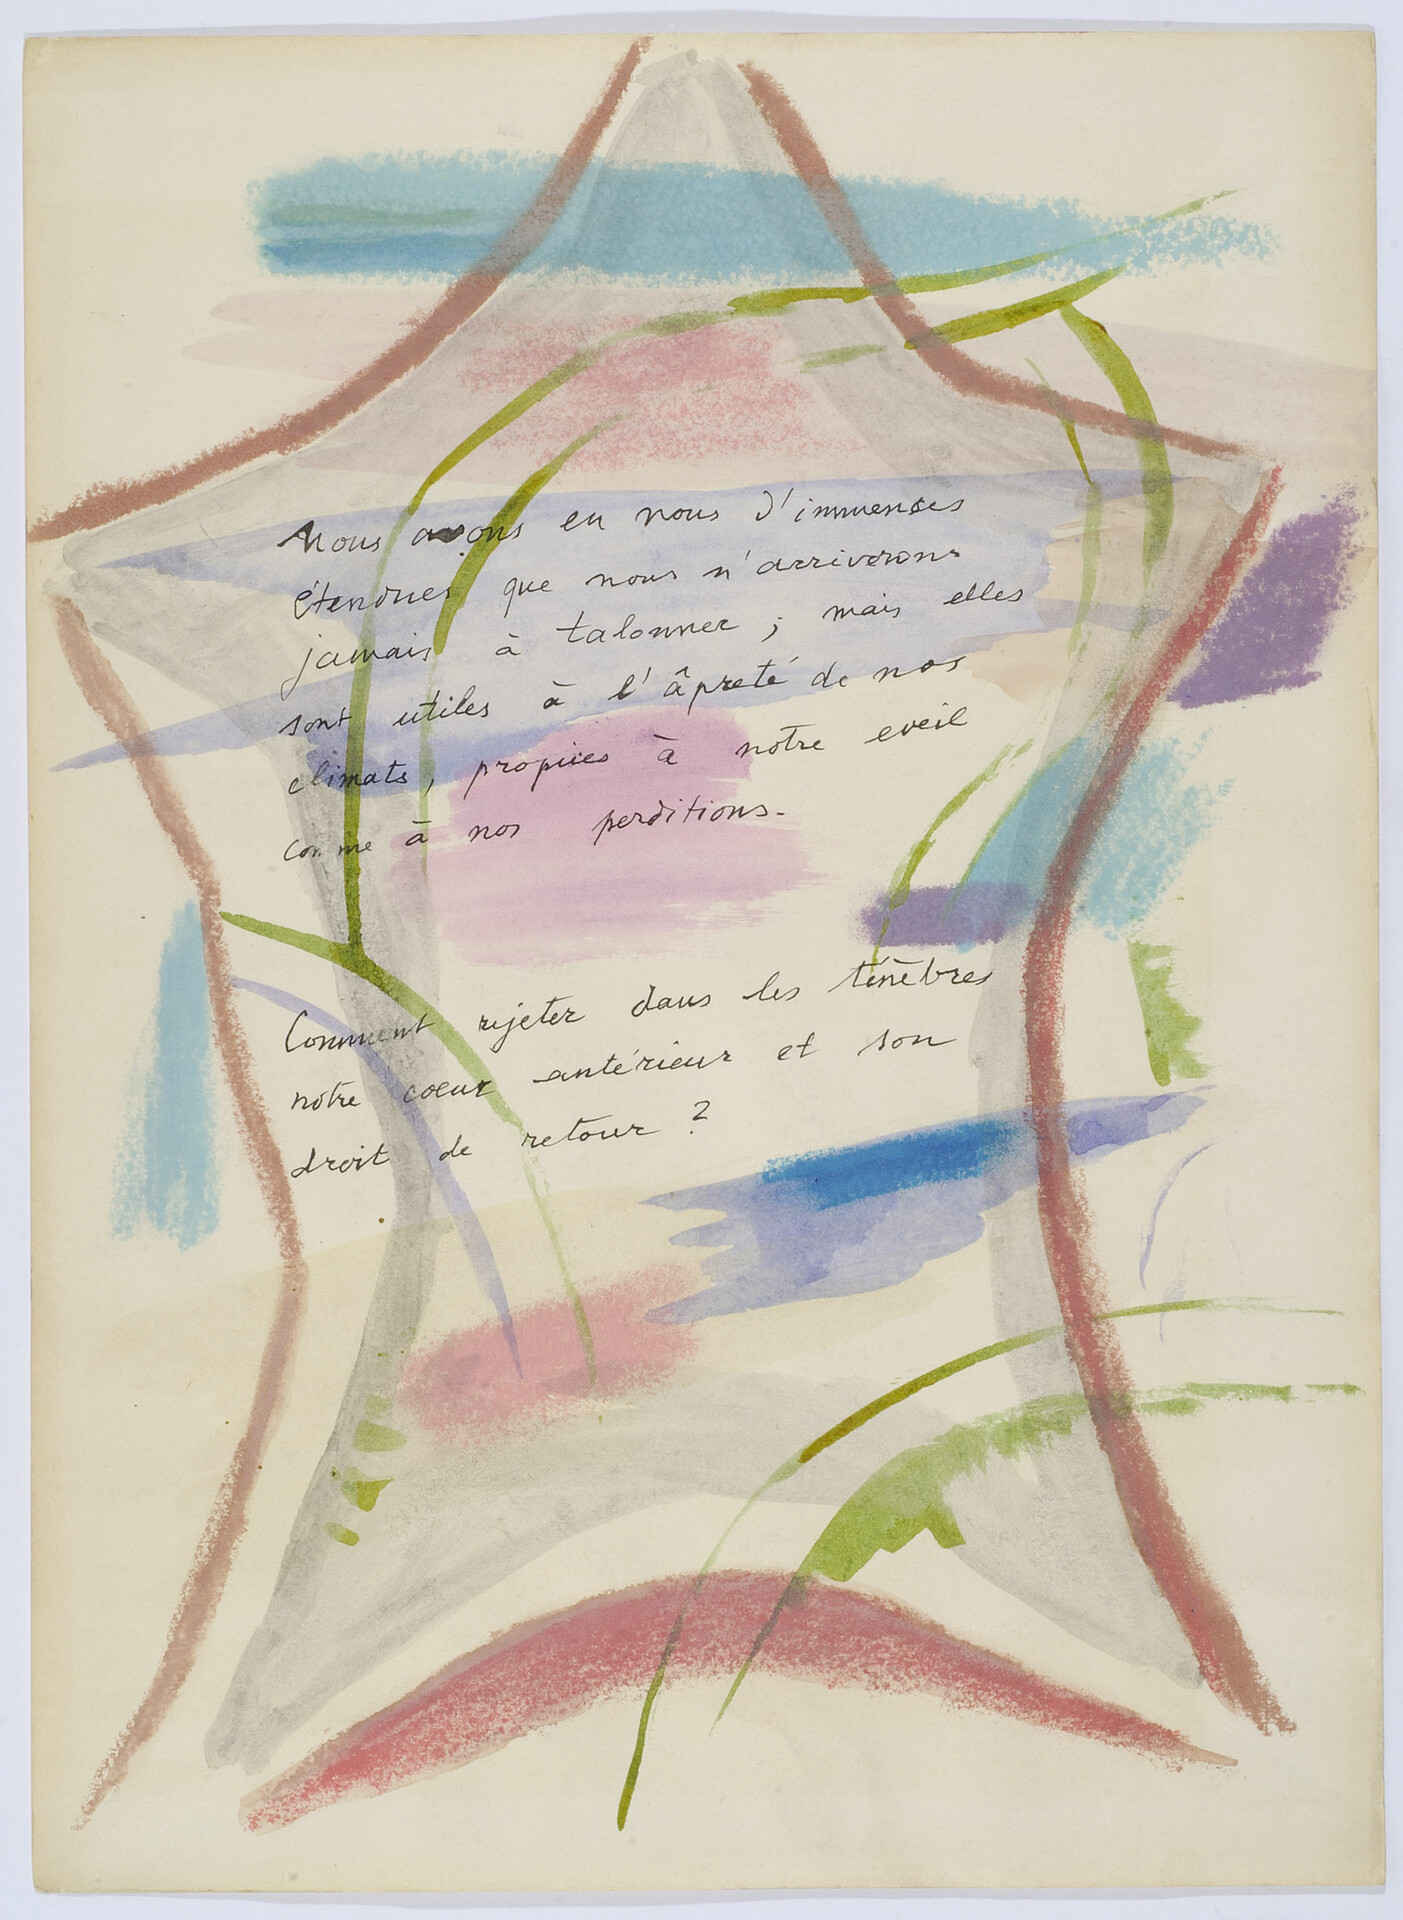 Nous avons en nous d'immenses
étendues que nous n'arriverons
jamais à talonner ; mais elles
sont utiles à l'âpreté de nos
climats, propices à notre eveil
comme à nos perditions.
Comment rejeter dans les ténèbres
notre coeur antérieur et son
droit de retour ?